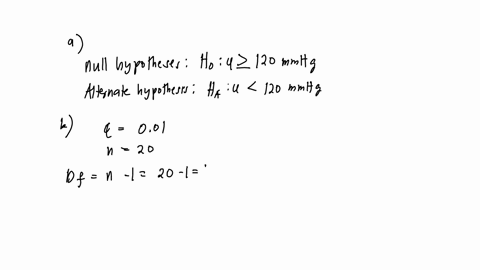 a)
Null hypotheses: H₀: u ≥ 120 mmHg
Alternate hypotheses: Hₐ: u < 120 mmHg
b) α = 0.01
n = 20
Df = n - 1 = 20 - 1 =